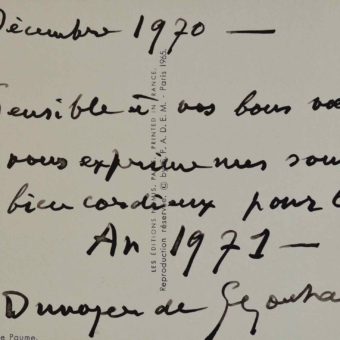 Décembre 1970 —
Sensible à vos bons vœ
vous exprime mes sou
bien cordiaux pour l
An 1971 —
Dunoyer de Segonza
LES ÉDITIONS NOMIS, PARIS. PRINTED IN FRANCE.
Reproduction réservée. © by S.P.A.D.E.M. - Paris 1965.
e Paume.